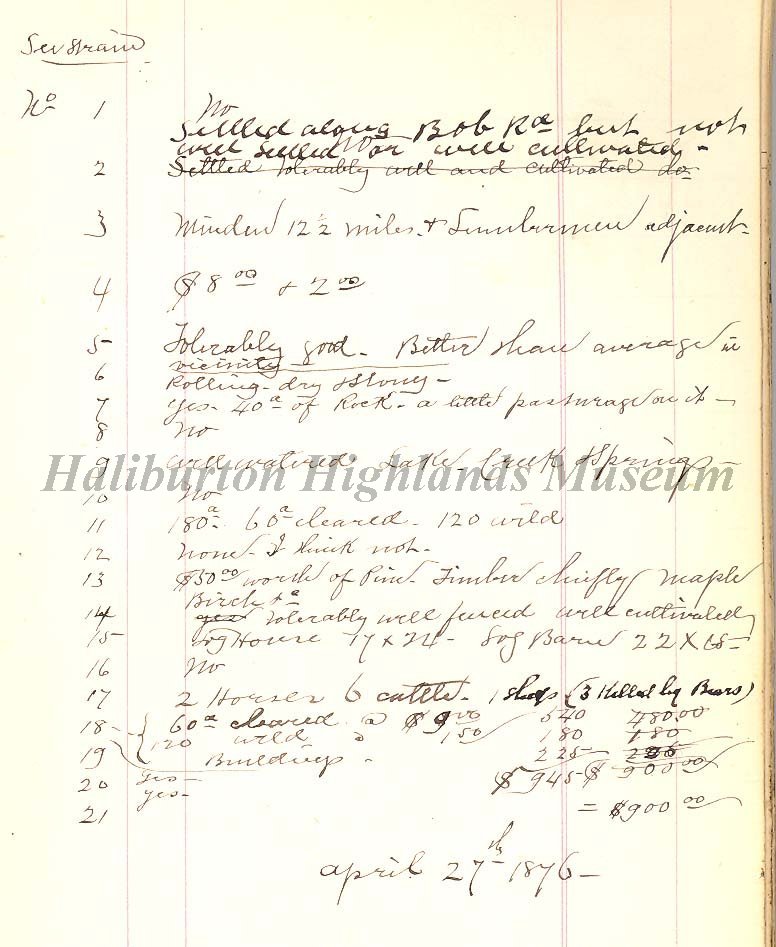 No 1 No
Settled along Bob Rd but not
well settled or well cultivated -
2 Settled tolerably well and cultivated do
3 Minden 12½ miles + Lumbermen adjacent -
4 $8 00 + 2 00
5 Tolerably good - Better than average in
vicinity
6 Rolling - dry & stony -
7 Yes - 40a of Rock - a little pasturage on it -
8 No
9 well watered Lake - Creek & Springs -
Haliburton Highlands Museum
10 No
11 180a - 60a cleared - 120 wild
12 none - I think not -
13 $50 00 worth of Pine - Timber chiefly maple
Birch &c
14 yes tolerably well fenced well cultivated
15 Log House 17 x 24 - Log Barn 22 x
16 No
17 2 Horses 6 cattle - 1 sheep (3 killed by Bears)
18 - 60a cleared @ $9 00 540 480.00
120 wild " 1 50 180 180
19 Buildings - 225
$945 $900 00
20 Yes -
21 Yes - = $900 00
april 27th 1876 -